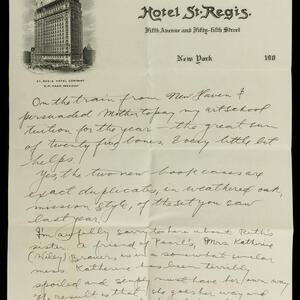 Hotel St. Regis.
Fifth Avenue and Fifty-fifth Street
New York 190
ST. REGIS HOTEL COMPANY
R. M. HAAN PRESIDENT
On the train from New Haven I
persuaded Mother to pay my art school
tuition for the year — the great sum
of twenty five bones. Every little bit
helps.
Yes, the two new book cases are
exact duplicates, in weathered oak,
mission style, of the set you saw
last year.
I'm awfully sorry to hear about Ruth's
sister. A friend of Pearl's, Mrs Katherine
(Wiley) Brauer, is in a somewhat similar
mess. Katherine has been terribly
spoiled and simply must have her own way.
The result is that she goes her way and